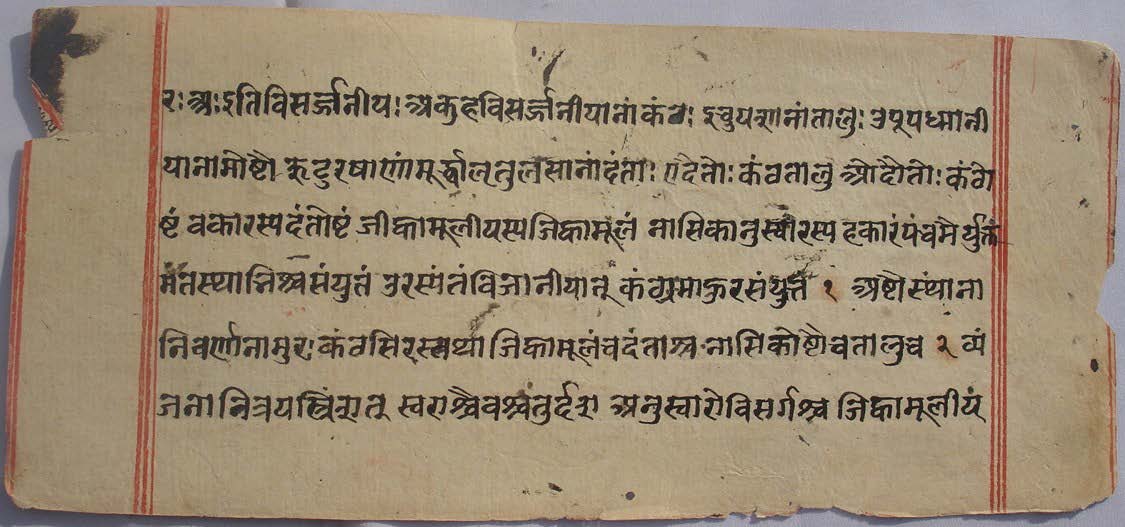 रः अः इति विसर्ज्जनीयः अकुहविसर्ज्जनीयानां कंठः इचुयशानांतालुः उपूपध्मानी
यानामोष्टौ ऋटुरषाणांमूर्द्धा लृतुलसानांदंताः एदैतोः कंठतालु ओदौतोः कंठो
ष्टं वकारस्यदंतोष्टं जीह्वामूलीयस्यजिह्वामूलं नासिकानुस्वारस्य हकारंपंचमैर्युक्त
मंतस्थाभिश्चसंयुतं उरस्यंतंविजानीयात् कंठ्यमाहुरसंयुतं १ अष्टौस्थाना
निवर्णानामुरः कंठसिरस्तथा जिह्वामूलंचदंताश्च नासिकोष्टौचतालुच २ व्यं
जनानित्रयस्त्रिंशत् स्वराश्चैवश्चतुर्दश अनुस्वारोविसर्गश्च जिह्वामूलीयं